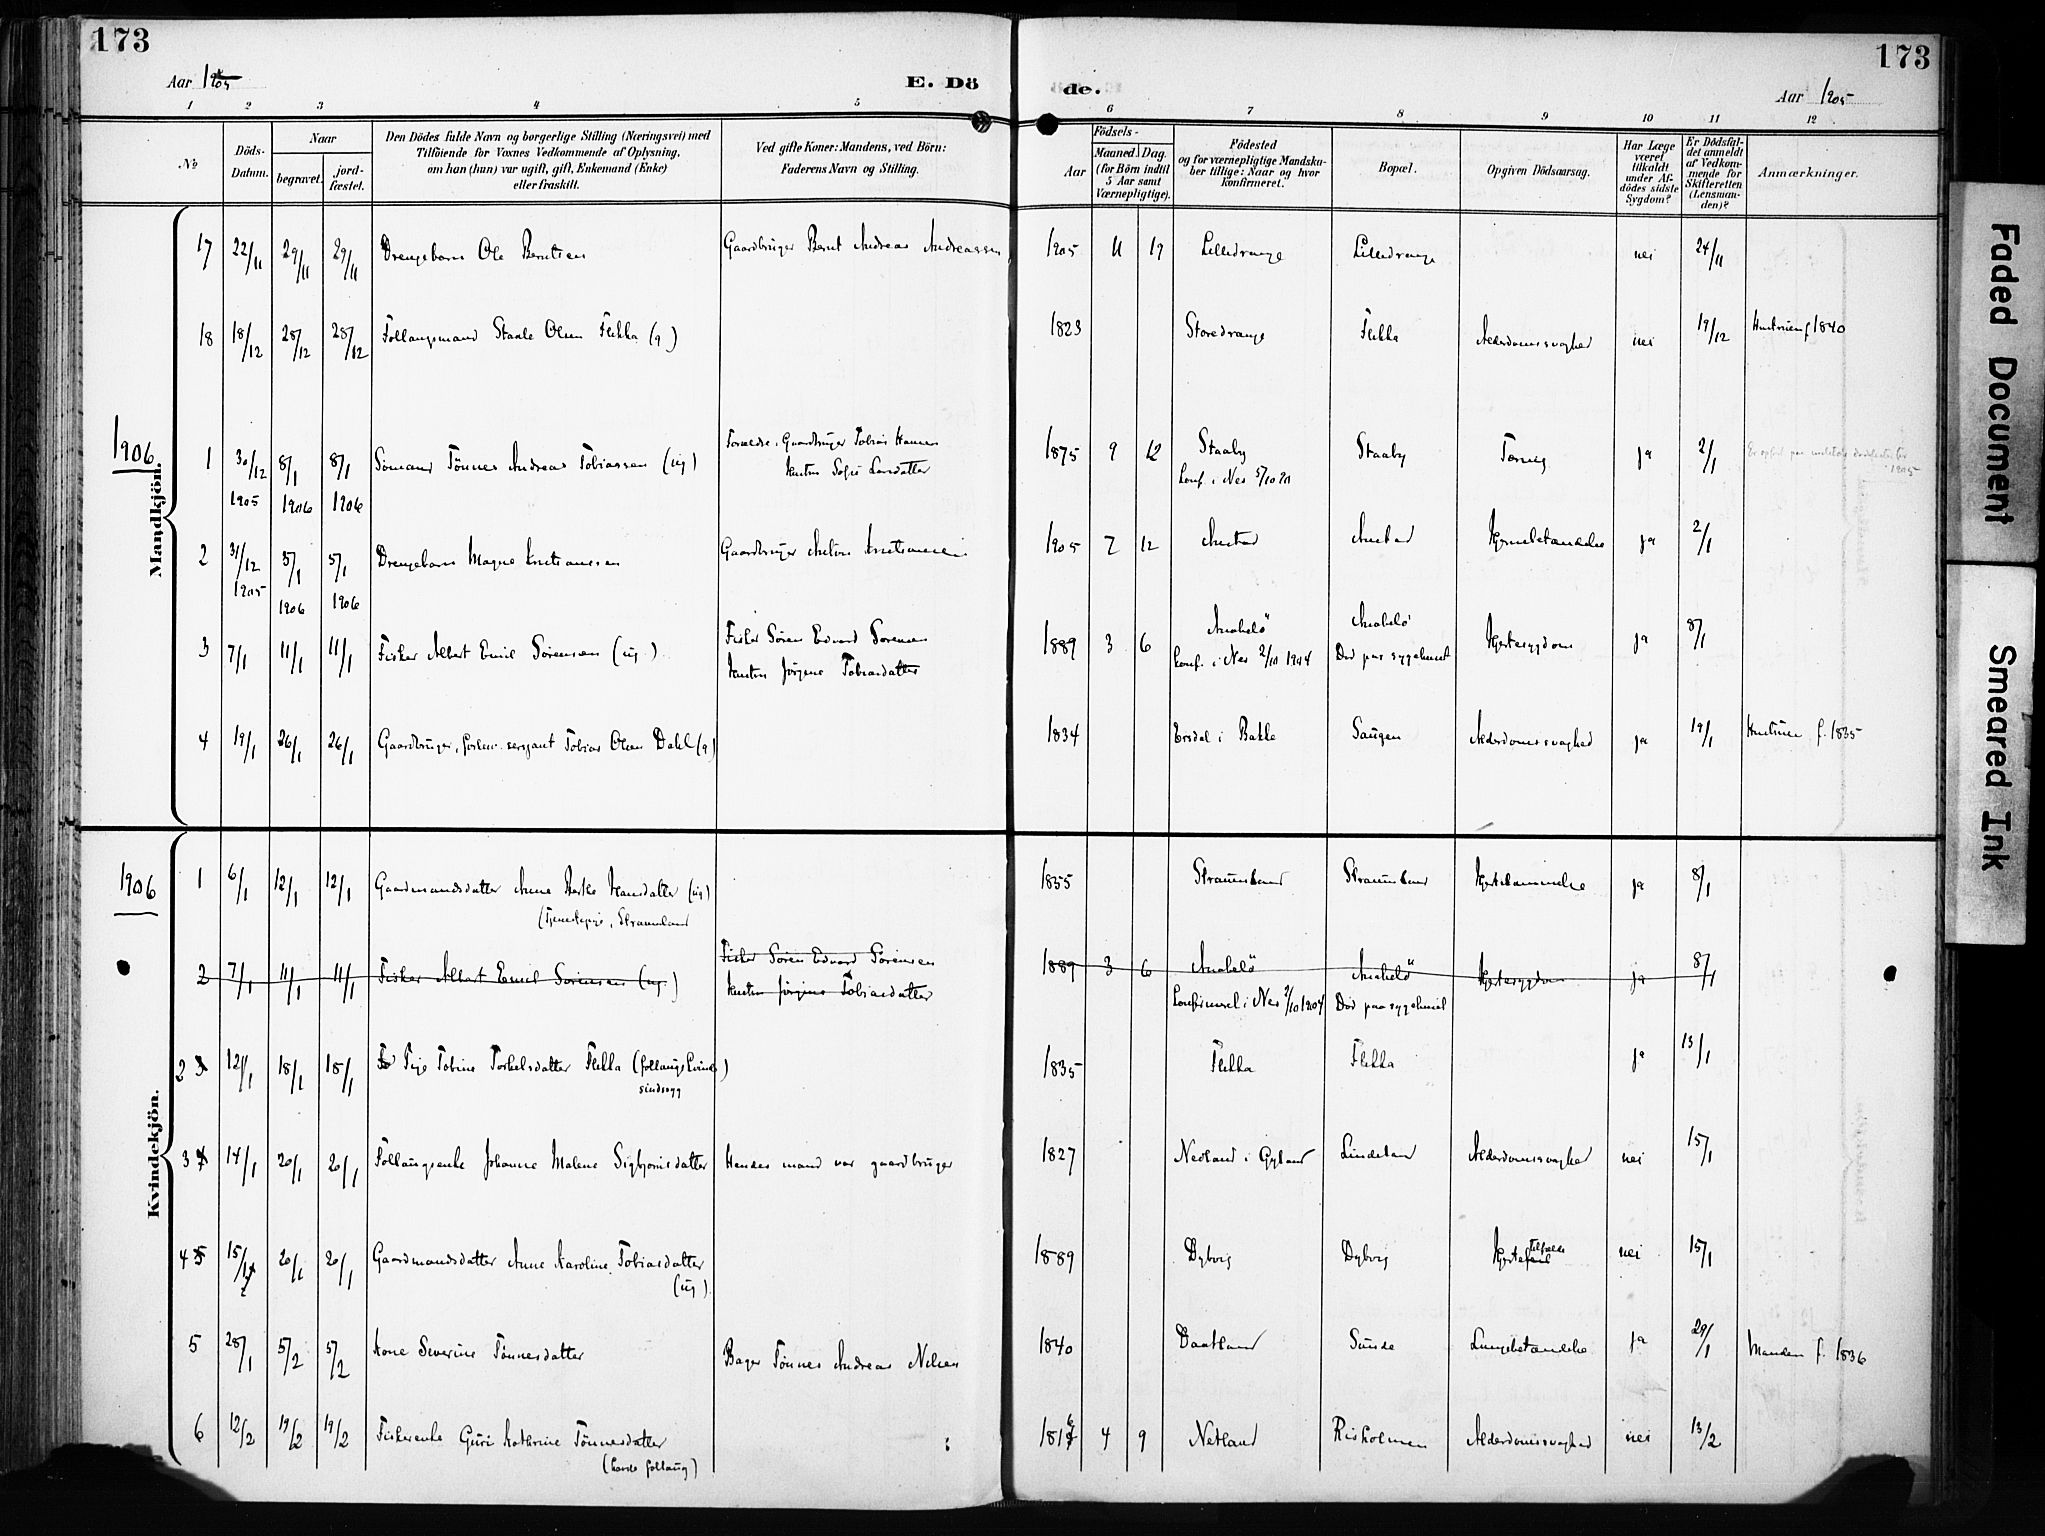 173
173
Aar 1905
E. Dö
de.
Aar 1905
1 2 3 4 5 6 7 8 9 10 11 12
No
Döds-
Datum.
Naar
begravet.
jord-
fæstet.
Den Dödes fulde Navn og borgerlige Stilling (Næringsvei) med
Tilföiende for Voxnes Vedkommende af Oplysning,
om han (hun) var ugift, gift, Enkemand (Enke)
eller fraskilt.
Ved gifte Koner: Mandens, ved Börn:
Faderens Navn og Stilling.
Födsels-
Aar
Maaned.
Dag.
(for Börn indtil
5 Aar samt
Værnepligtige).
Födested
og for værnepligtige Mandska-
ber tillige: Naar og hvor
konfirmeret.
Bopæl.
Opgiven Dödsaarsag.
Har Læge
været
tilkaldt
under Af-
dödes sidste
Sygdom?
Er Dödsfal-
det anmeldt
af Vedkom-
mende for
Skifteretten
(Lensman-
den)?
Anmærkninger.
Mandkjön.
17 22/11 29/11 29/11 Drengebarn Ole Berntsen Gaardbruger Bernt Andreas Andreassen 1905 11 19 Lilledrange Lilledrange nei 24/11
18 18/12 28/12 28/12 Follaugsmand Staale Olsen Flikka (g) 1823 Storedrange Flikka Alderdomssvaghed nei 19/12 Hustruen f 1840
1906
1 30/12 1905 8/1 1906 8/1 1906 Sömand Tönnes Andreas Tobiassen (ug) Forældre: Gaardbruger Tobias Hansen
Hustru Sofie Larsdatter 1875 9 12 Staaby
Konf. i Nes Staaby Tæring ja 2/1
1905
2 31/12 1905 5/1 1906 5/1 1906 Drengebarn Magne Kristiansen Gaardbruger Anton Kristiansen 1905 7 12 Austad Austad ja 2/1
3 7/1 11/1 11/1 Fisker Albert Emil Sörensen (ug.) Fisker Sören Edvard Sörensen
Hustru Jörgine Tobiasdatter 1889 3 6 Anabelö
konf. i Nes 2/10 1904 Anabelö
Död paa sygehuset Hjertesygdom ja 8/1
4 19/1 26/1 26/1 Gaardbruger, forhv. sergeant Tobias Olsen Dahl (g) 1834 Ersdal i Bakke Saugen Alderdomssvaghed ja 19/1 Hustruen f. 1835
Kvindekjön.
1906
1 6/1 12/1 12/1 Gaardmandsdatter Anne Hansdatter (ug)
(Tjenestepige, Straumland 1855 Straumland Straumland ja 8/1
2 7/1 11/1 11/1 Fisker Albert Emil Sörensen (ug.) Fisker Sören Edvard Sörensen
Hustru Jörgine Tobiasdatter 1889 3 6 Anabelö
Konfirmeret i Nes 2/10 1904 Anabelö
Död paa sygehuset Hjertesygdom ja 8/1
2 3 12/1 18/1 18/1 Pige Tobine Torkelsdatter Flikka (follaugskvinde)
sindssyg 1835 Flikka Flikka ja 13/1
3 4 14/1 20/1 20/1 Follaugsenke Johanne Malene Sigbjörnsdatter Hendes mand var gaardbruger 1827 Netland i Gyland Lindeland Alderdomssvaghed nei 15/1
4 5 15/1 20/1 20/1 Gaardmandsdatter Anne Karoline Tobiasdatter
(ug) 1889 Dybvig Dybvig Hjertefeil tilfælde nei 15/1
5 28/1 5/2 5/2 Kone Severine Tönnesdatter Bager Tönnes Andreas Nilsen 1840 Daatland Sunde Lungebetændelse ja 29/1 Manden f. 1836
6 12/2 19/2 19/2 Fiskerenke Guri Kathrine Tönnesdatter
(havde follaug) 1816 4 9 Netland Risholmen Alderdomssvaghed nei 13/2
Faded Document
Smeared Ink